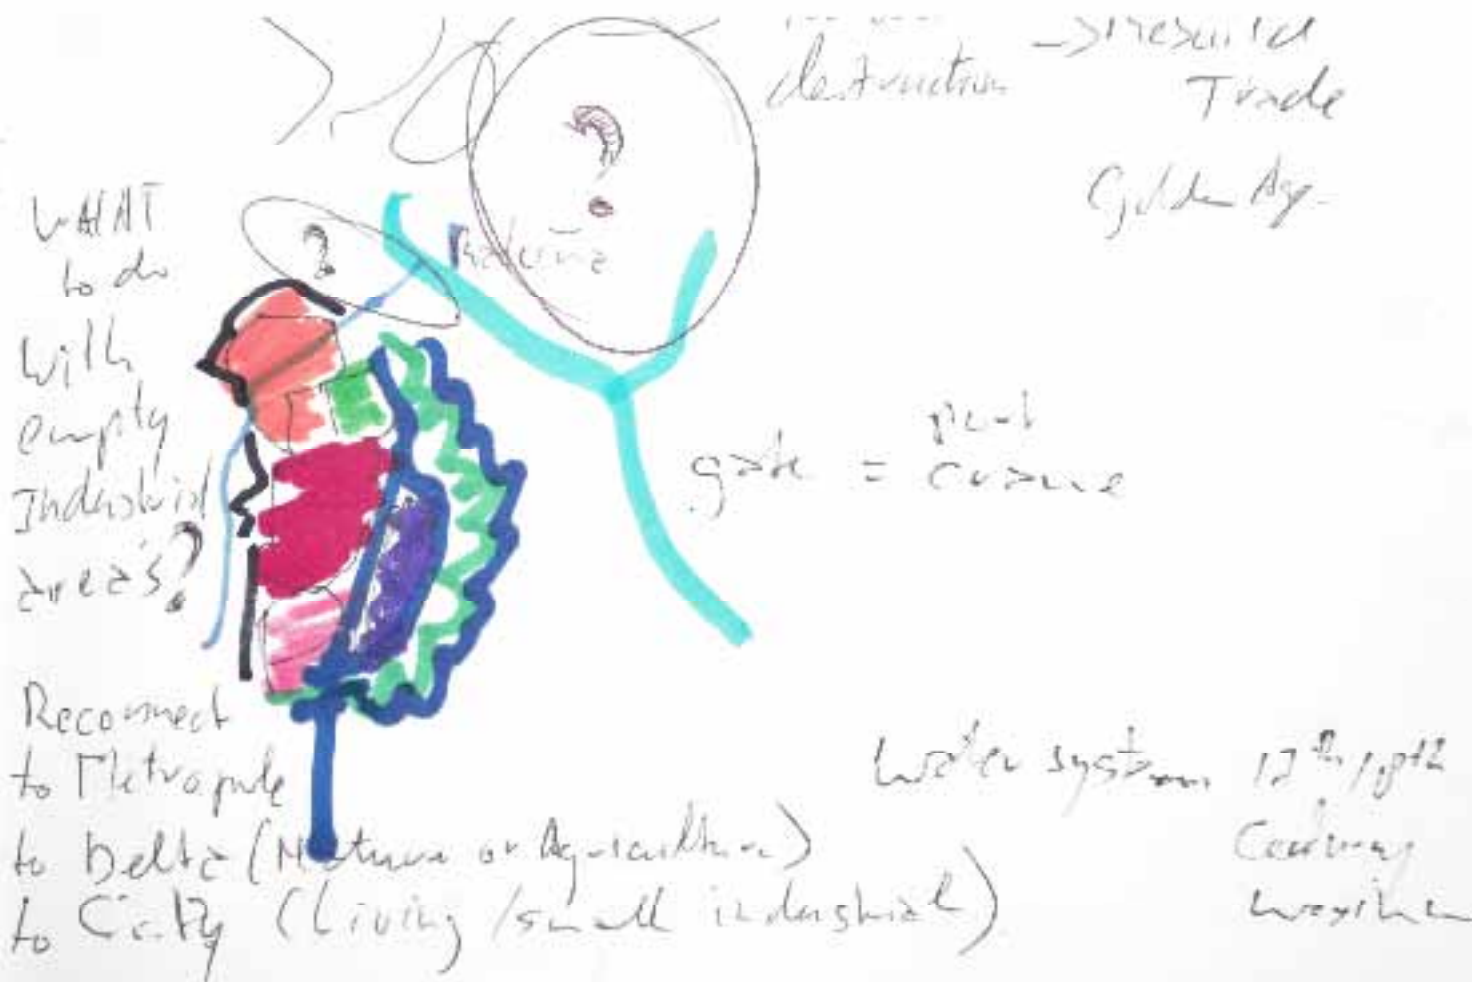 destruction → rebuild
Trade
Golden Age
WHAT
to do
with
empty
Industrial
area's?
gate =
Reconnect
to Metropole
to Delta (Nature or Agriculture)
to City (Living / small industrial)
water system 17th/18th
Century